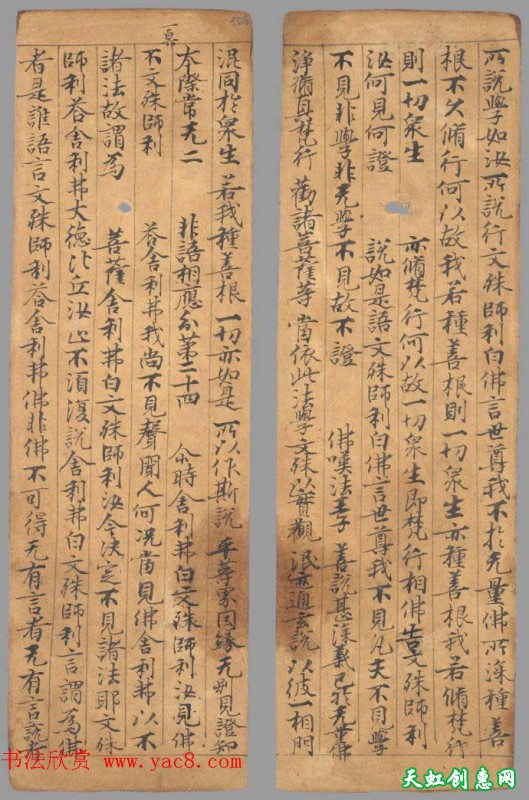 所說學如汝所說行文殊師利白佛言世尊我不於无量佛所深種善
根不久脩行何以故我若種善根則一切衆生亦種善根我若脩梵行
則一切衆生 亦脩梵行何以故一切衆生即梵行相佛告文殊師利
汝何見何證 說如是語文殊師利白佛言世尊我不見凡夫不見學
不見非學非无學不見故不證 佛嘆法王子 善說甚深義 已於无量佛
淨脩身梵行 勸諸菩薩等 當依此法學 文殊以實觀 泯 通玄說 以彼一相門
混同於衆生 若我種善根 一切亦如是 所以作斯說 平等 因緣 无別見證知
本際常无二 非語相應分第二十四 尒時舍利弗白文殊師利汝見佛
不文殊師利 荅舍利弗我尚不見聲聞人何況當見佛舍利弗以不
諸法故謂爲 菩薩舍利弗白文殊師利汝今決定不見諸法耶文殊
師利荅舍利弗大德比丘汝止不須復說舍利弗白文殊師利言謂爲佛
者是誰語言文殊師利荅舍利弗佛非佛不可得无有言者无有言說者
书法欣赏 www.yac8.com
天虹创惠网